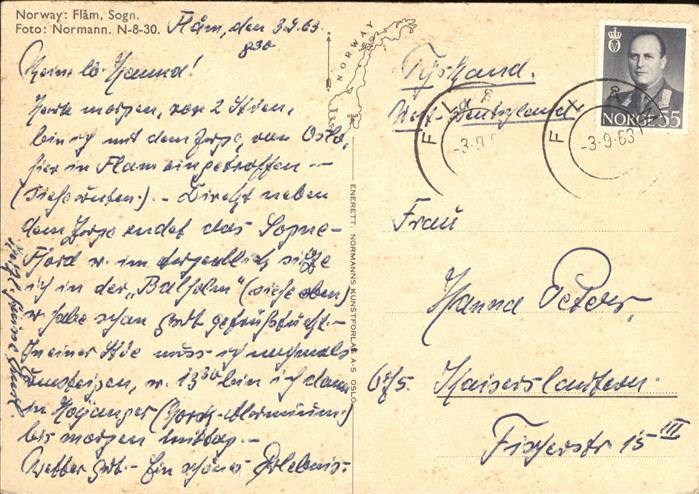 Norway: Flåm, Sogn.
Foto: Normann. N-8-30.
Flåm, den 3.9.63.
8³⁰
Hanna!
Heute morgen, vor 2 Stden,
bin ich mit dem Zuge, von Oslo,
hier in Flam eingetroffen —
(siehe unten). — Direkt neben
dem Zuge endet das Sogne-
Fjord u. im Augenblick sitze
ich in der „Balholm" (siehe oben)
u. habe schon gut gefrühstückt. —
In einer Stde muss ich nochmals
umsteigen, u. 13³⁰ bin ich dann
in Höyanger (Norsk-Alluminium)
bis morgen mittag. —
Wetter gut. — Ein schönes Erlebnis. —
NORWAY
Oslo
ENERETT: NORMANNS KUNSTFORLAG A-S OSLO
Tyskland.
West-Deutschland
NORGE 55
FLÅM
-3-9.63
FLÅM
-3-9.63
Frau
Hanna Peters,
675. Kaiserslautern.
Fischerstr 15 III